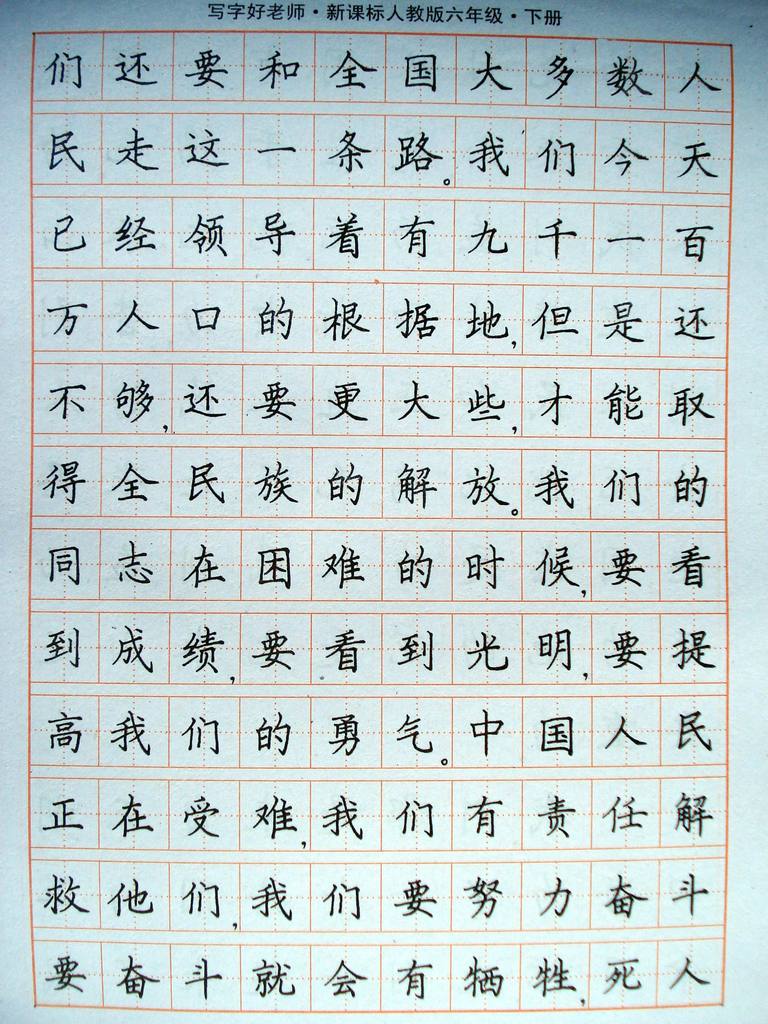 写字好老师·新课标人教版六年级·下册
们还要和全国大多数人
民走这一条路。我们今天
已经领导着有九千一百
万人口的根据地,但是还
不够,还要更大些,才能取
得全民族的解放。我们的
同志在困难的时候,要看
到成绩,要看到光明,要提
高我们的勇气。中国人民
正在受难,我们有责任解
救他们,我们要努力奋斗
要奋斗就会有牺牲,死人